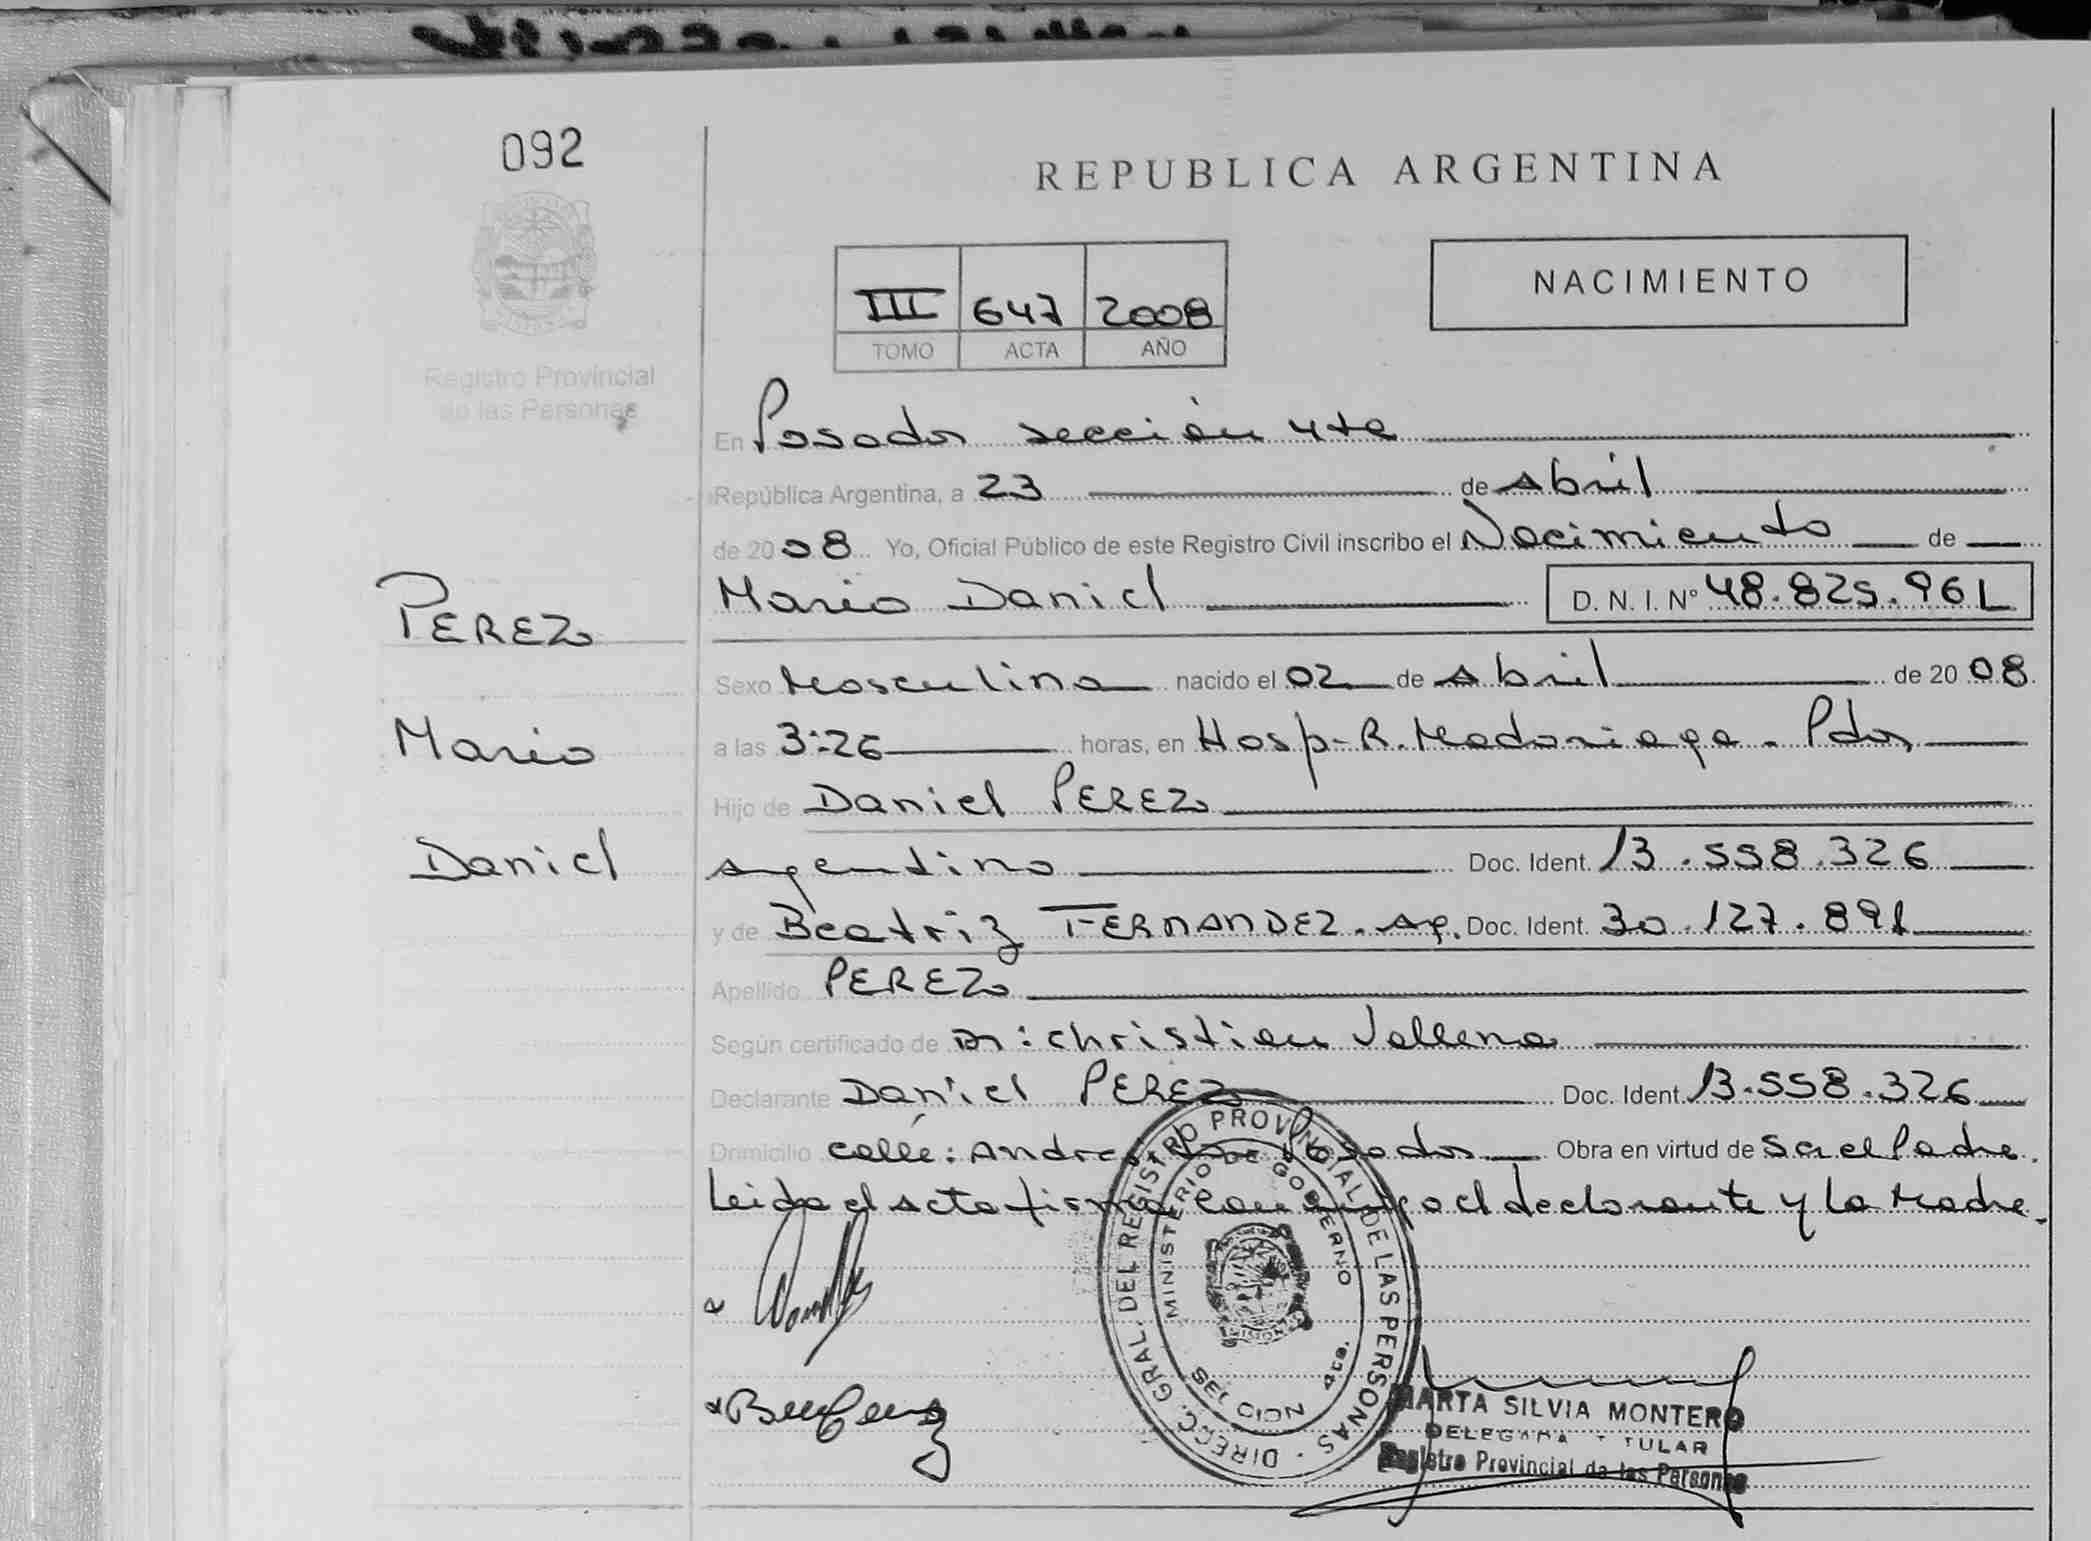 092
REPUBLICA ARGENTINA
III 647 2008
TOMO ACTA AÑO
NACIMIENTO
Registro Provincial
de las Personas
En Posadas sección 4ta
República Argentina, a 23 de Abril
de 2008 Yo, Oficial Público de este Registro Civil inscribo el Nacimiento de
Mario Daniel D. N. I. Nº 48.825.961
PEREZ
Sexo Masculino nacido el 02 de Abril de 2008
Mario
a las 3:26 horas, en Hosp-R. Madariaga - Pdas
Hijo de Daniel PEREZ
Daniel
Argentino Doc. Ident. 13.558.326
y de Beatriz FERNANDEZ. Ag. Doc. Ident. 30.127.891
Apellido PEREZ
Según certificado de Dr: Christian
Declarante Daniel PEREZ Doc. Ident. 13.558.326
Domicilio calle: Posadas Obra en virtud de Ser el Padre.
Leida el acta firma conmigo el declarante y la Madre.
DIRECC. GRAL. DEL REGISTRO PROVINCIAL DE LAS PERSONAS
MINISTERIO DE GOBIERNO
MISIONES
SECCION 4ta.
MARTA SILVIA MONTERO
DELEGADA TITULAR
Registro Provincial de las Personas